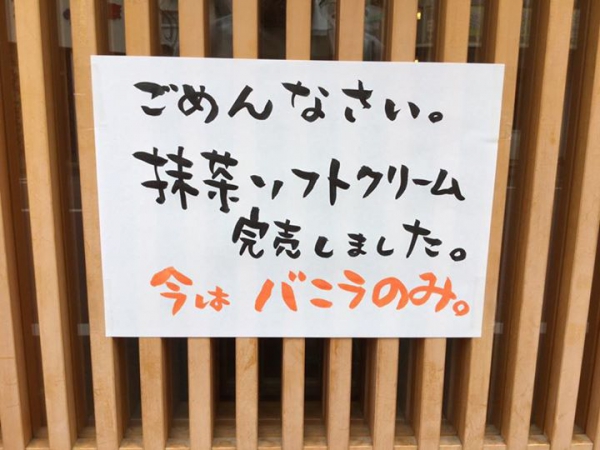 ごめんなさい。
抹茶ソフトクリーム
完売しました。
今は バニラのみ。